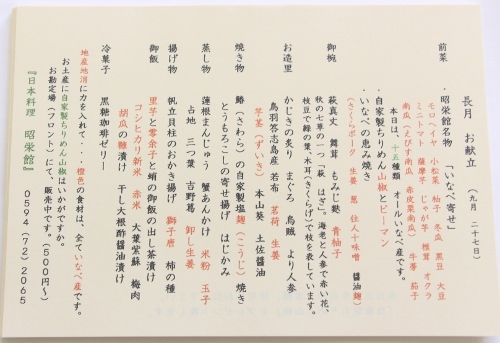 長月　お献立　（九月　二十七日）
前菜　・昭栄館名物　「いなべ寄せ」
モロヘイヤ　小松菜　柚子　冬瓜　黒豆　大豆
ミニトマト　薩摩芋　じゃが芋　椎茸　オクラ
南瓜（えびす南瓜　赤皮栗南瓜）　牛蒡　茄子
本日は、十五種類　オールいなべ産です。
・自家製ちりめん山椒とピーマン
・いなべの恵み焼き
（さくらポーク　生姜　葱　住人十味噌　醤油麹）
御椀　萩真丈　舞茸　もみじ麩　青柚子
秋の七草の一つ「萩　はぎ」。海老と人参で赤い花、
枝豆で緑の葉、木耳（きくらげ）で枝を表しています。
お造里　かじきの炙り　まぐろ　烏賊　より人参
鳥羽答志島産　若布　茗荷　生姜
芋茎（ずいき）　本山葵　土佐醤油
焼き物　鰆（さわら）の自家製塩麹（こうじ）焼き
とうもろこしの寄せ揚げ　はじかみ
蒸し物　蓮根まんじゅう　蟹あんかけ　米粉　玉子
占地　三つ葉　吉野葛　卸し生姜
揚げ物　帆立貝柱のおかき揚げ　獅子唐　柿の種
御飯　里芋と零余子と蛸の御飯の出し茶漬け
コシヒカリ新米　赤米　大葉紫蘇　梅肉
胡瓜の麹漬け　干し大根酢醤油漬け
冷菓子　黒糖珈琲ゼリー
地産地消に力を入れて・・・橙色の食材は、全ていなべ産です。
お土産に自家製ちりめん山椒はいかがですか。
お勘定場（フロント）にて、販売中です。（５００円～）
『日本料理　昭栄館』　０５９４（７２）２０６５